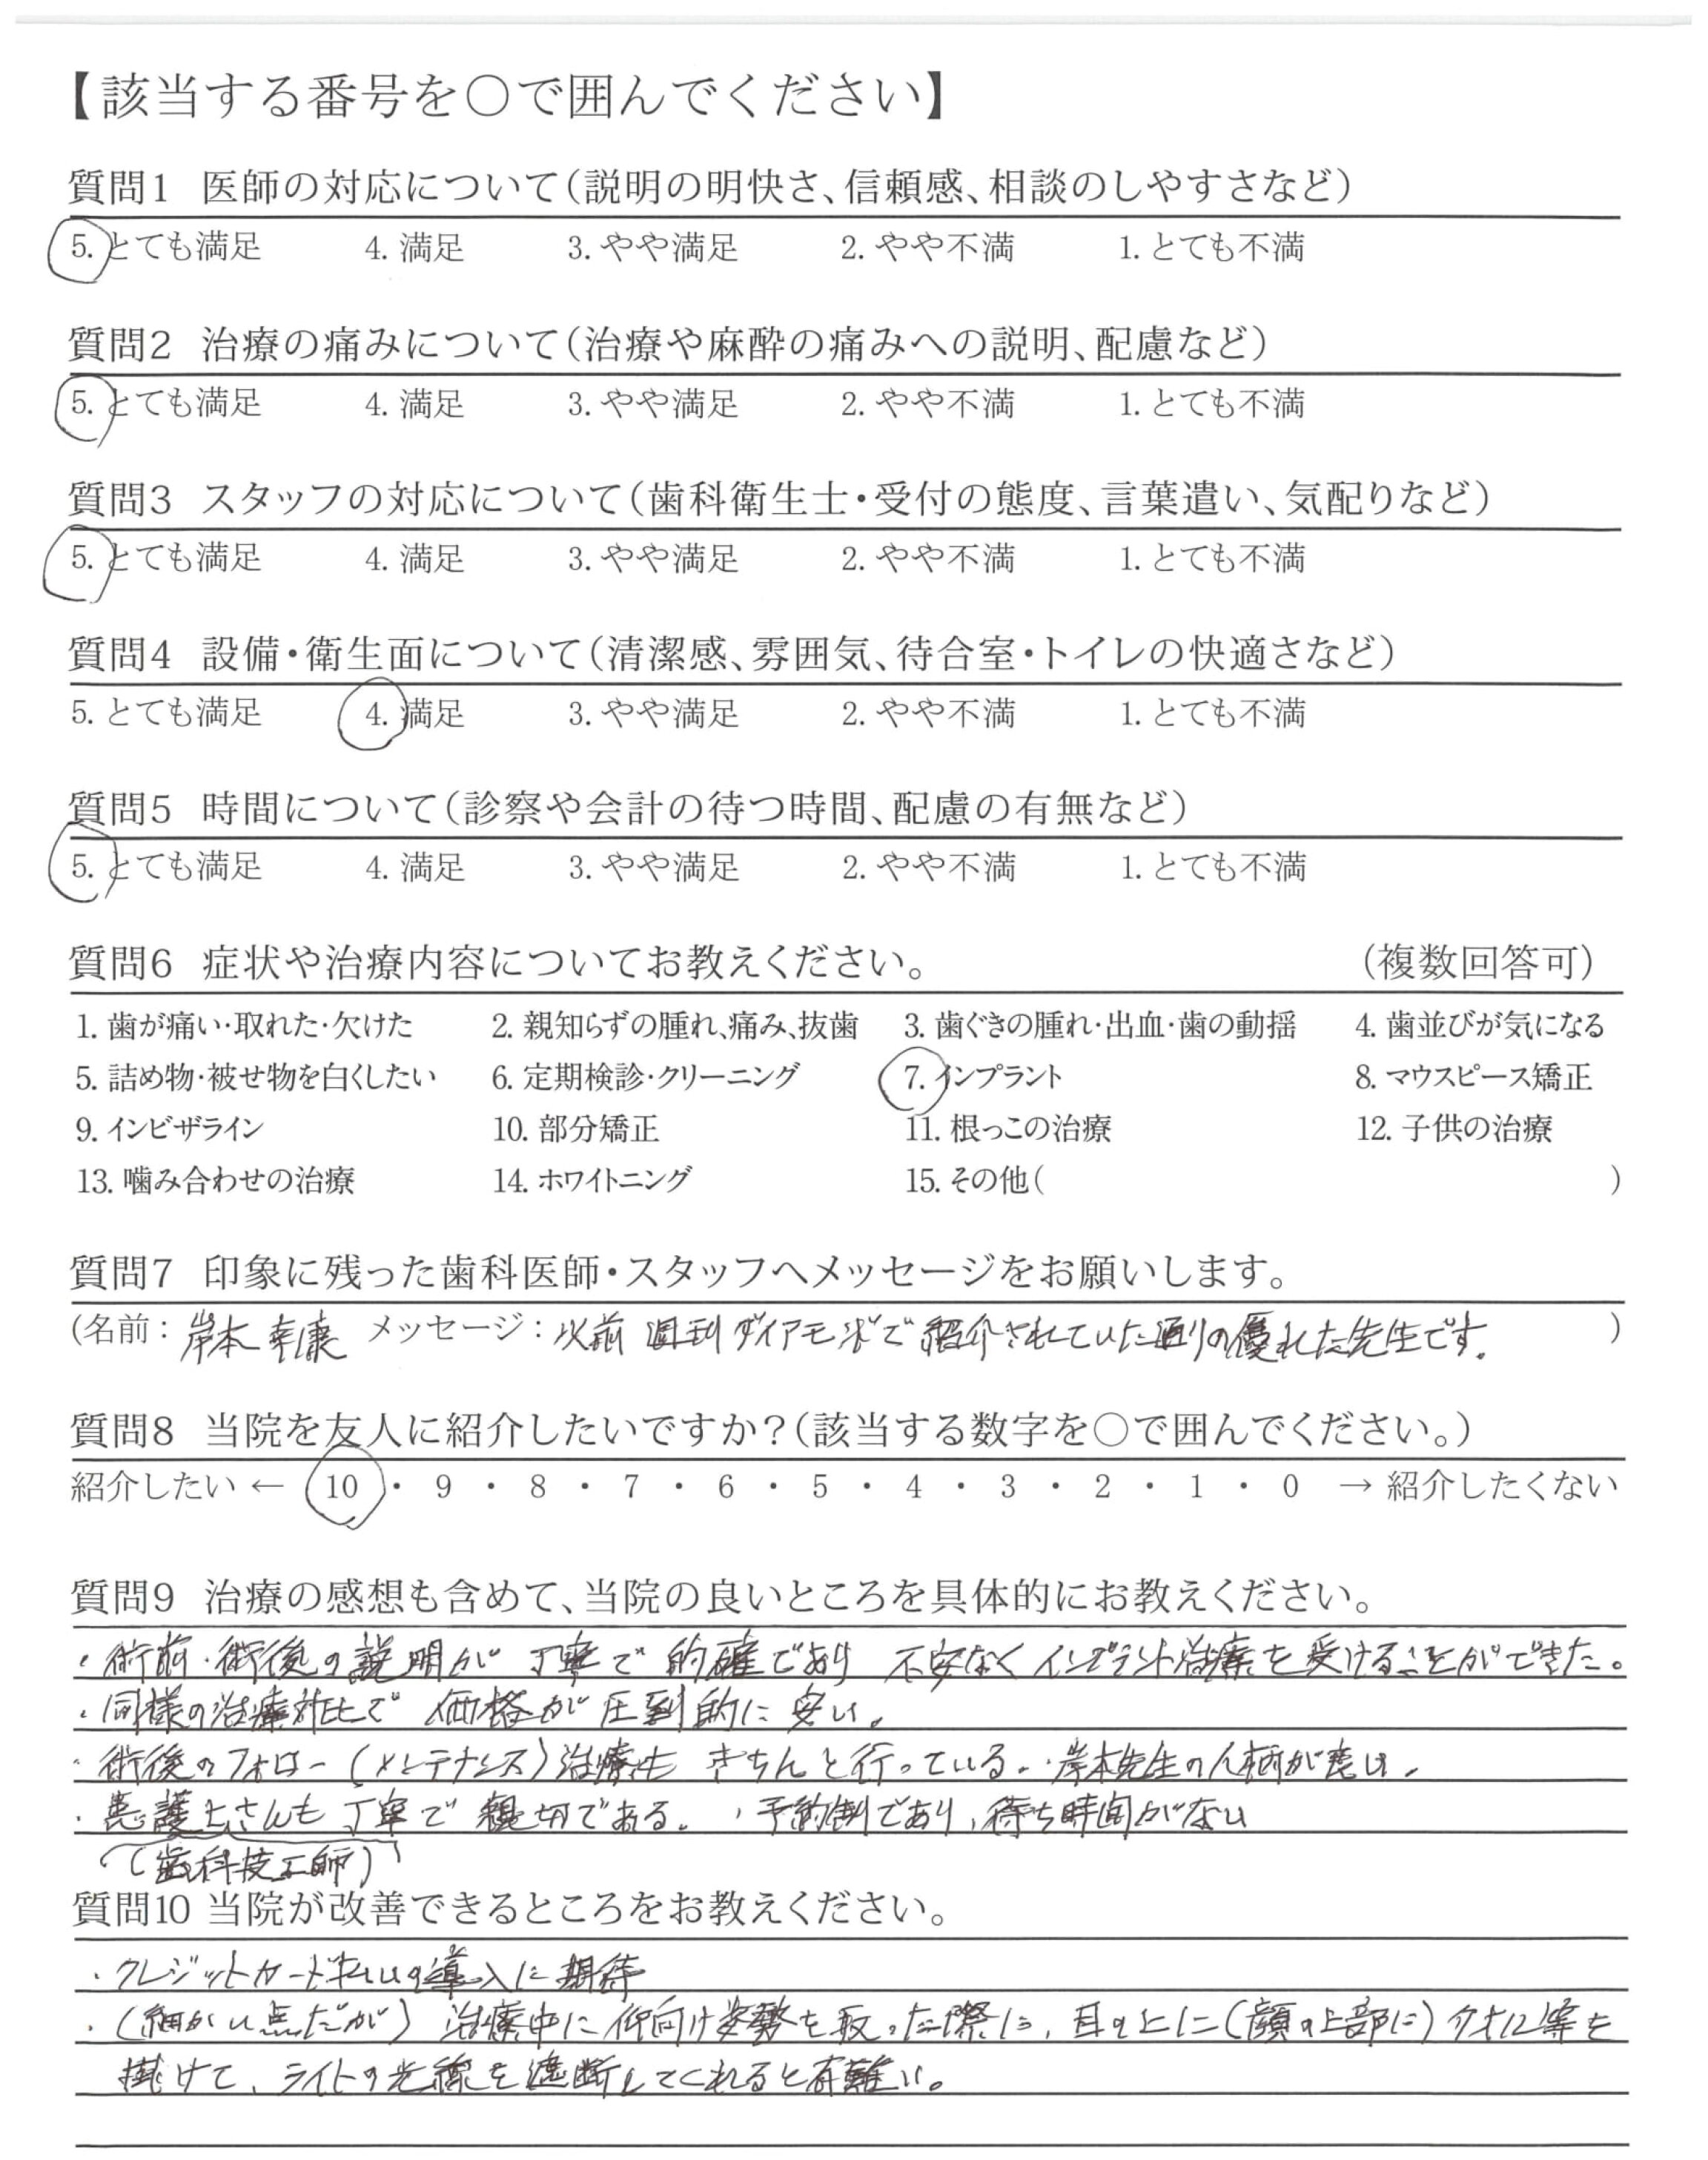 【該当する番号を○で囲んでください】
質問1 医師の対応について(説明の明快さ、信頼感、相談のしやすさなど)
5. とても満足 4. 満足 3. やや満足 2. やや不満 1. とても不満
質問2 治療の痛みについて(治療や麻酔の痛みへの説明、配慮など)
5. とても満足 4. 満足 3. やや満足 2. やや不満 1. とても不満
質問3 スタッフの対応について(歯科衛生士・受付の態度、言葉遣い、気配りなど)
5. とても満足 4. 満足 3. やや満足 2. やや不満 1. とても不満
質問4 設備・衛生面について(清潔感、雰囲気、待合室・トイレの快適さなど)
5. とても満足 4. 満足 3. やや満足 2. やや不満 1. とても不満
質問5 時間について(診察や会計の待つ時間、配慮の有無など)
5. とても満足 4. 満足 3. やや満足 2. やや不満 1. とても不満
質問6 症状や治療内容についてお教えください。 (複数回答可)
1. 歯が痛い・取れた・欠けた 2. 親知らずの腫れ、痛み、抜歯 3. 歯ぐきの腫れ・出血・歯の動揺 4. 歯並びが気になる
5. 詰め物・被せ物を白くしたい 6. 定期検診・クリーニング 7. インプラント 8. マウスピース矯正
9. インビザライン 10. 部分矯正 11. 根っこの治療 12. 子供の治療
13. 噛み合わせの治療 14. ホワイトニング 15. その他( )
質問7 印象に残った歯科医師・スタッフへメッセージをお願いします。
(名前: 岸本 幸康 メッセージ: 以前 週刊ダイアモンドで紹介されていた通りの優れた先生です。 )
質問8 当院を友人に紹介したいですか?(該当する数字を○で囲んでください。)
紹介したい ← 10 ・ 9 ・ 8 ・ 7 ・ 6 ・ 5 ・ 4 ・ 3 ・ 2 ・ 1 ・ 0 → 紹介したくない
質問9 治療の感想も含めて、当院の良いところを具体的にお教えください。
・術前・術後の説明が 丁寧で的確であり 不安なくインプラント治療を受けることができた。
・同様の治療対比で 価格が圧到的に安い。
・術後のフォロー(メンテナンス)治療も きちんと行っている。・岸本先生の人柄が良い。
・看護士さんも丁寧で親切である。・予約制であり、待ち時間がない
(歯科技工師)
質問10 当院が改善できるところをお教えください。
・クレジットカード払いの導入に期待
・(細かい点だが) 治療中に仰向け姿勢を取った際に、耳の上に(顔の上部に)タオル等を
掛けて、ライトの光線を遮断してくれると有難い。